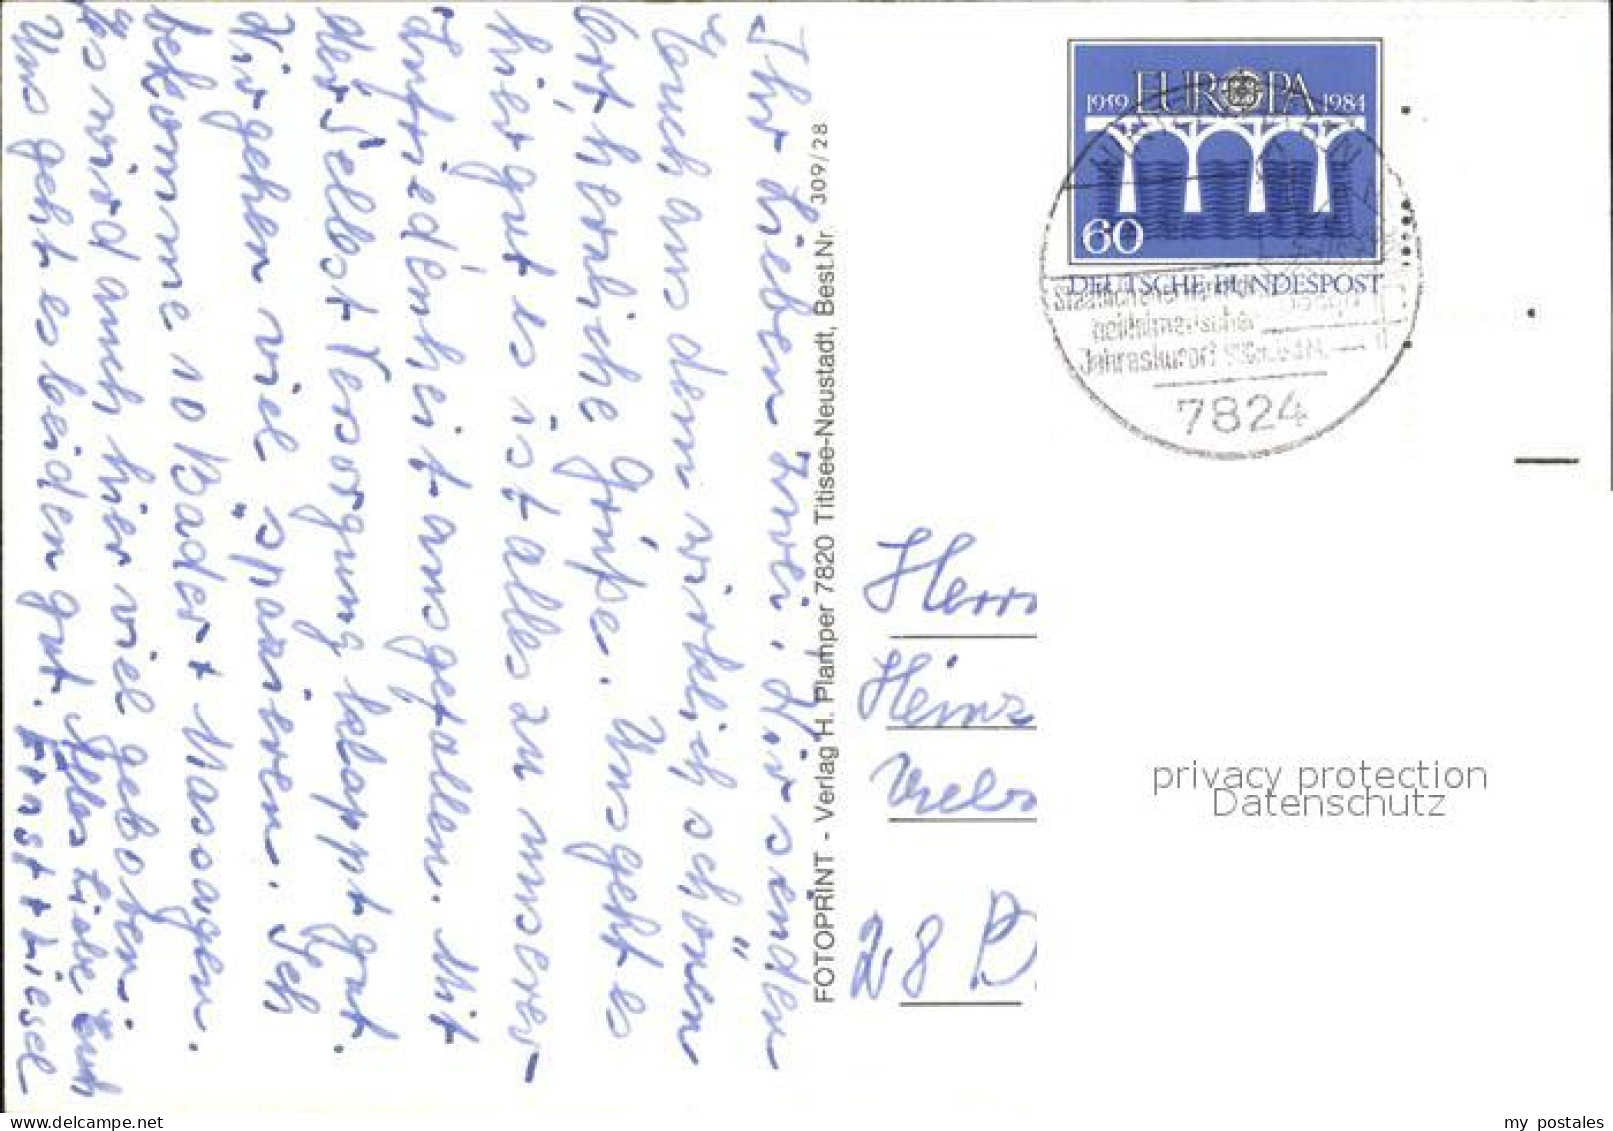 Ihr Lieben Zwei, Wir senden
Euch aus dem wirklich schönen
Ort herzliche Grüße. Uns geht es
hier gut es ist alles zu unserer
Zufriedenheit ausgefallen. Mit
der Selbst Versorgung klappt gut.
Wir gehen viel "spazieren. Ich
bekomme 10 Bäder + Massagen.
Es wird auch hier viel geboten
Uns geht es beiden gut. Alles Liebe Euch
Ernst + Liesel
FOTOPRINT - Verlag H. Plamper 7820 Titisee-Neustadt, Best.Nr. 309/28
1959 EUROPA 1984
60
DEUTSCHE BUNDESPOST
Staatlich anerkannter
heilklimatischer
Jahreskurort
7824
Herrn
Heinz
28 B
privacy protection
Datenschutz
www.delcampe.net
my_postales